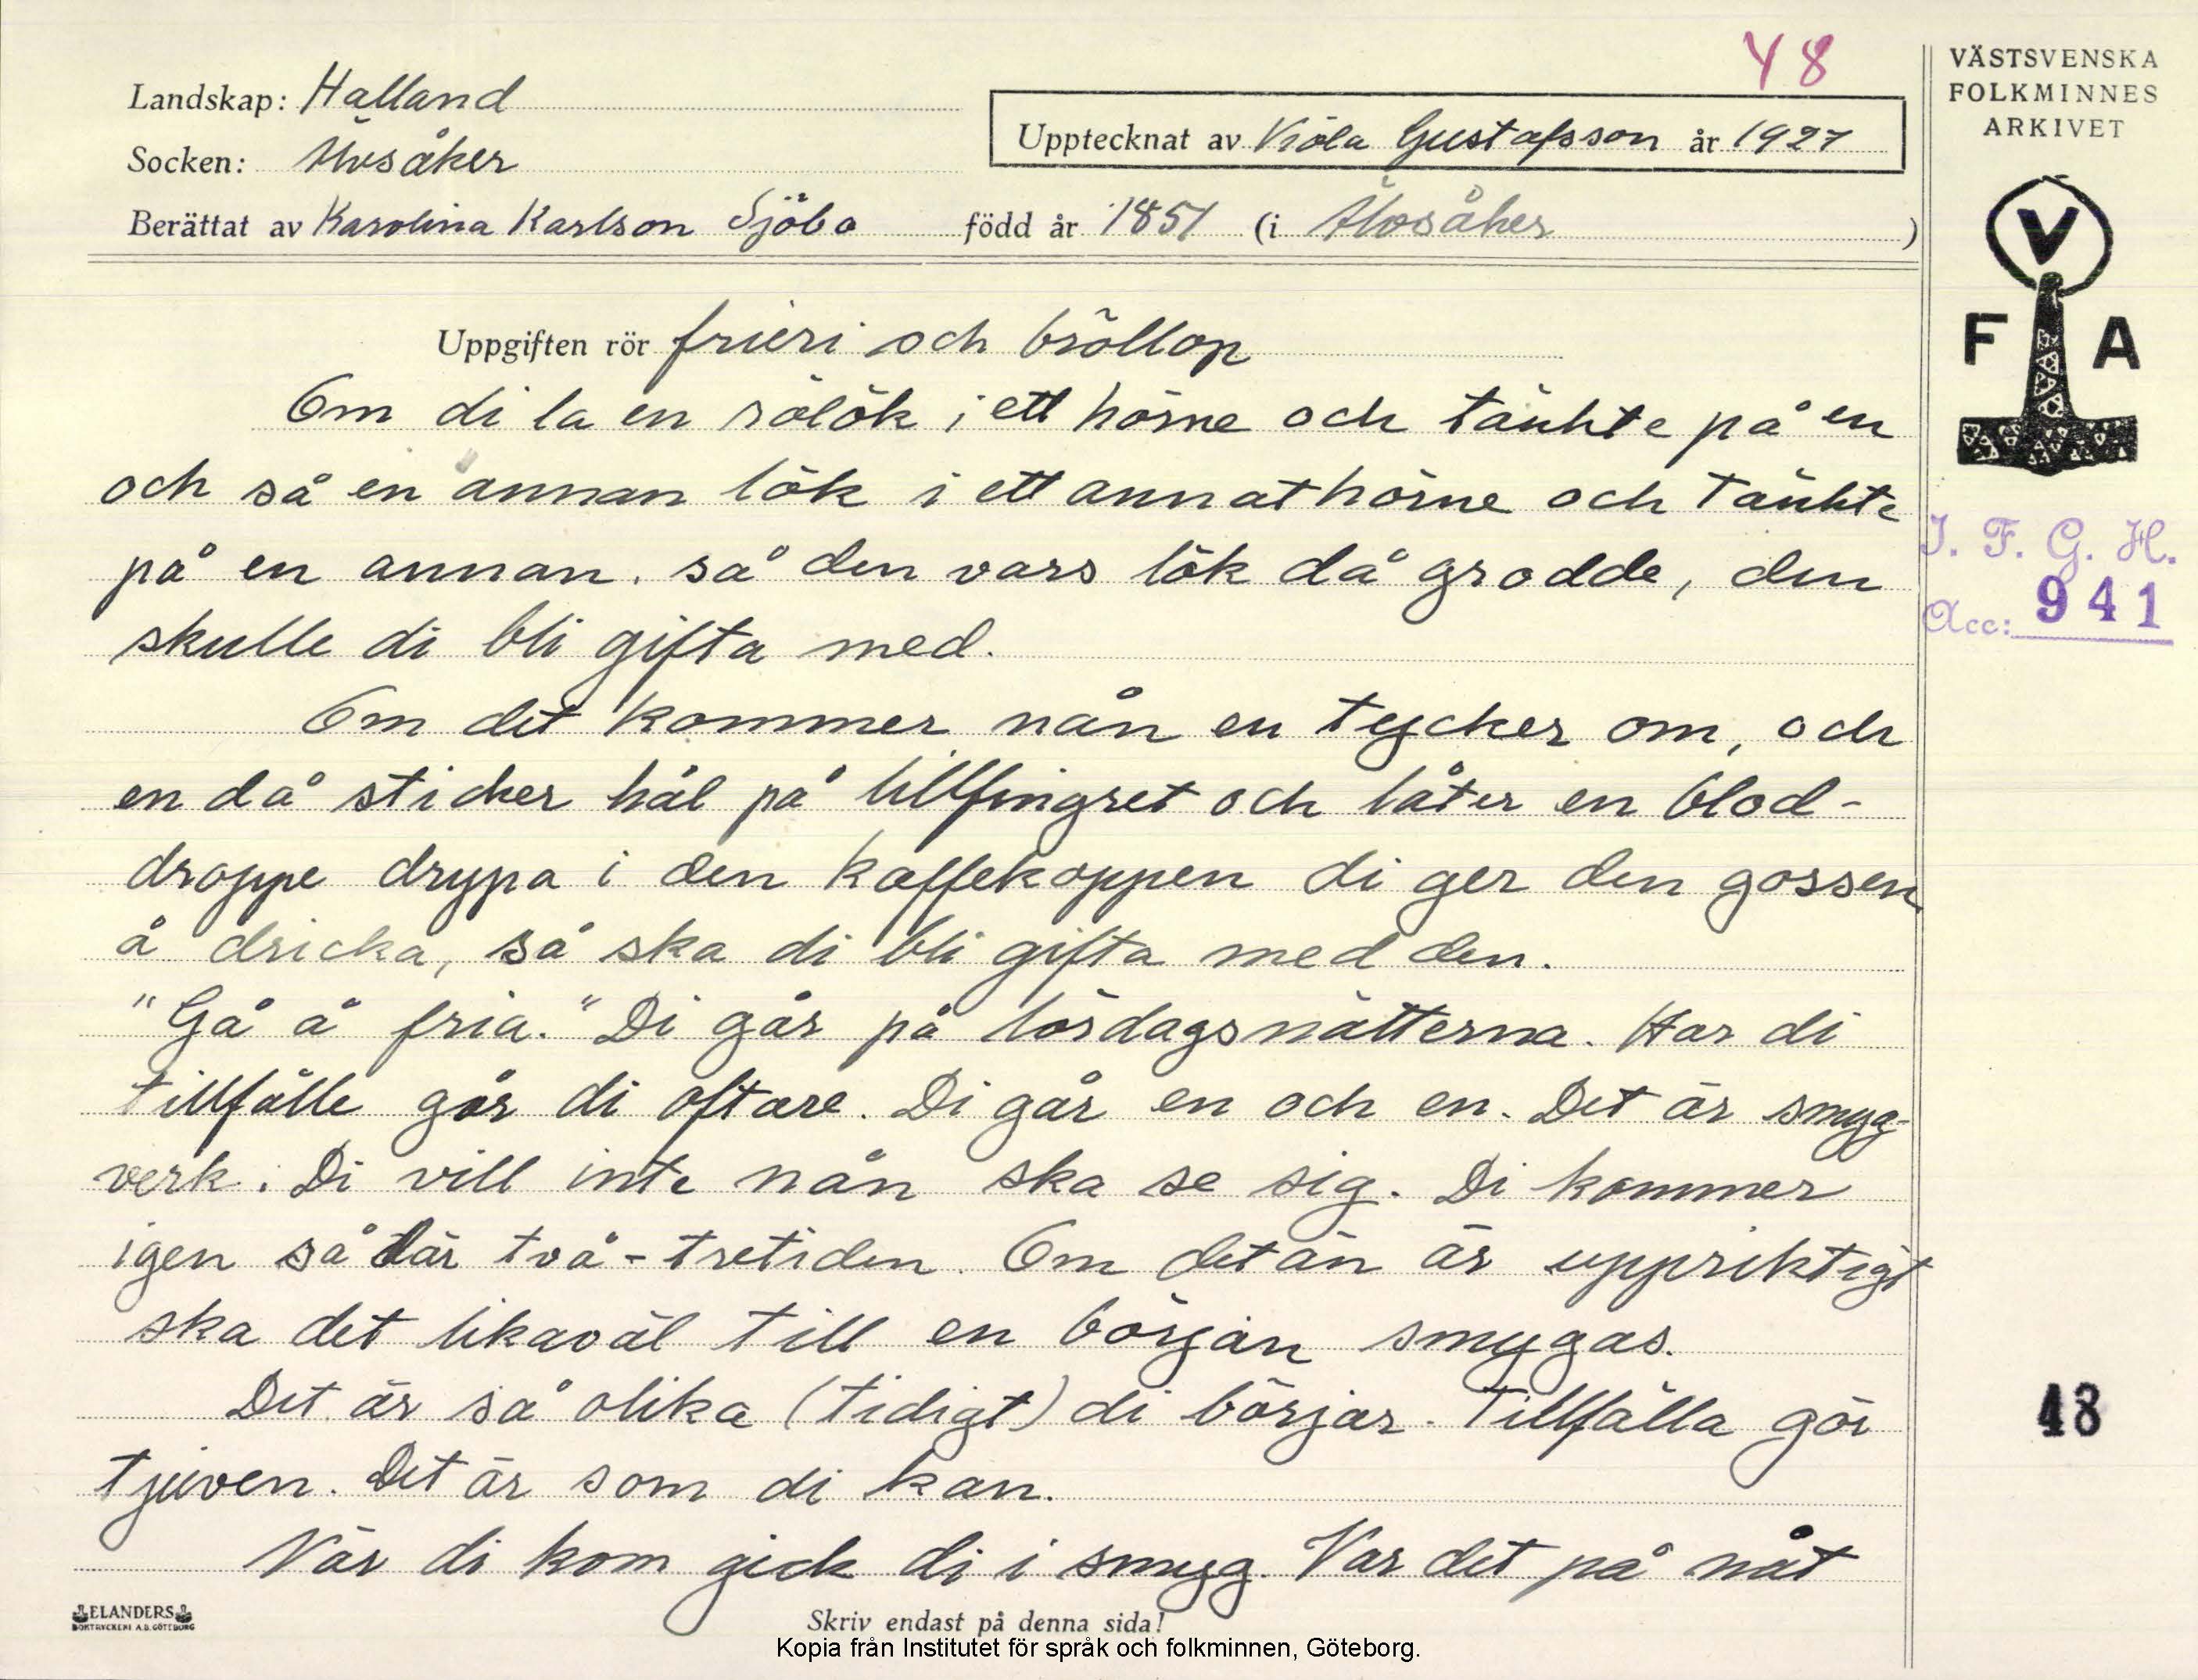 48
Landskap: Halland
Socken: Älvsåker
Upptecknat av Viola Gustafsson år 1927
Berättat av Karolina Karlson Sjöbo född år 1851 (i Älvsåker )
VÄSTSVENSKA
FOLKMINNES
ARKIVET
V
F A
I. F. G. H.
Acc: 941
Uppgiften rör frieri och bröllop
Om di la en rölök i ett hörne och tänkte på en
och så en annan lök i ett annat hörne och tänkte
på en annan. så den vars lök då grodde, den
skulle di bli gifta med.
Om det kommer nån en tycker om, och
en då sticker hål på lillfingret och låter en blod-
droppe drypa i den kaffekoppen di ger den gossen
å dricka, så ska di bli gifta med den.
"Gå å fria." Di går på lördagsnätterna. Har di
tillfälle går di oftare. Di går en och en. Det är smyg-
verk. Di vill inte nån ska se sig. Di kommer
igen så där två-tretiden. Om det än är uppriktigt
ska det likaväl till en början smygas.
Det är så olika (tidigt) di börjar. Tillfälla gör
tjuven. Det är som di kan.
När di kom gick di i smyg. Var det på nåt
48
ELANDERS
BOKTRYCKERI A.B. GÖTEBORG
Skriv endast på denna sida!
Kopia från Institutet för språk och folkminnen, Göteborg.